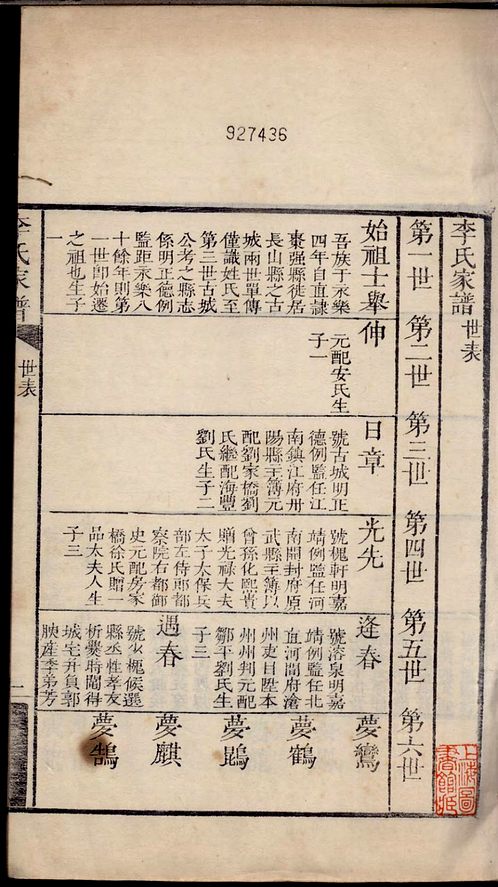 927436
李氏家譜 世表
第一世 第二世 第三世 第四世 第五世 第六世
始祖士舉
吾族于永樂
四年自直隷
棗强縣徙居
長山縣之古
城兩世單傳
僅識姓氏至
第三世古城
公考之縣志
係明正德例
監距永樂八
十餘年則第
一世卽始遷
之祖也生子
一
伸
元配安氏生
子一
日章
號古城明正
德例監任江
南鎮江府丹
陽縣主簿元
配劉家橋劉
氏繼配海豐
劉氏生子二
光先
號槐軒明嘉
靖例監任河
南開封府原
武縣主簿以
曾孫化熙貴
贈光禄大夫
太子太保兵
部左侍郎都
察院右都御
史元配房家
橋徐氏贈一
品太夫人生
子三
逢春
號溶泉明嘉
靖例監任北
直河間府滄
州吏目陞本
州州判元配
鄒平劉氏生
子三
遇春
縣丞性孝友
析爨時闔得
城宅弁負郭
腴産季弟芳
夢鸞
夢鶴
夢鵾
夢麒
夢鵠
李氏家譜
世表